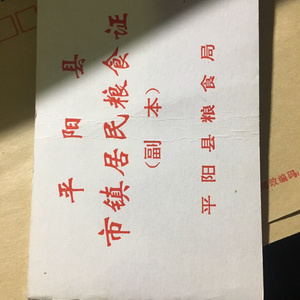 平阳县
市镇居民粮食证
(副本)
平阳县粮食局
政编码